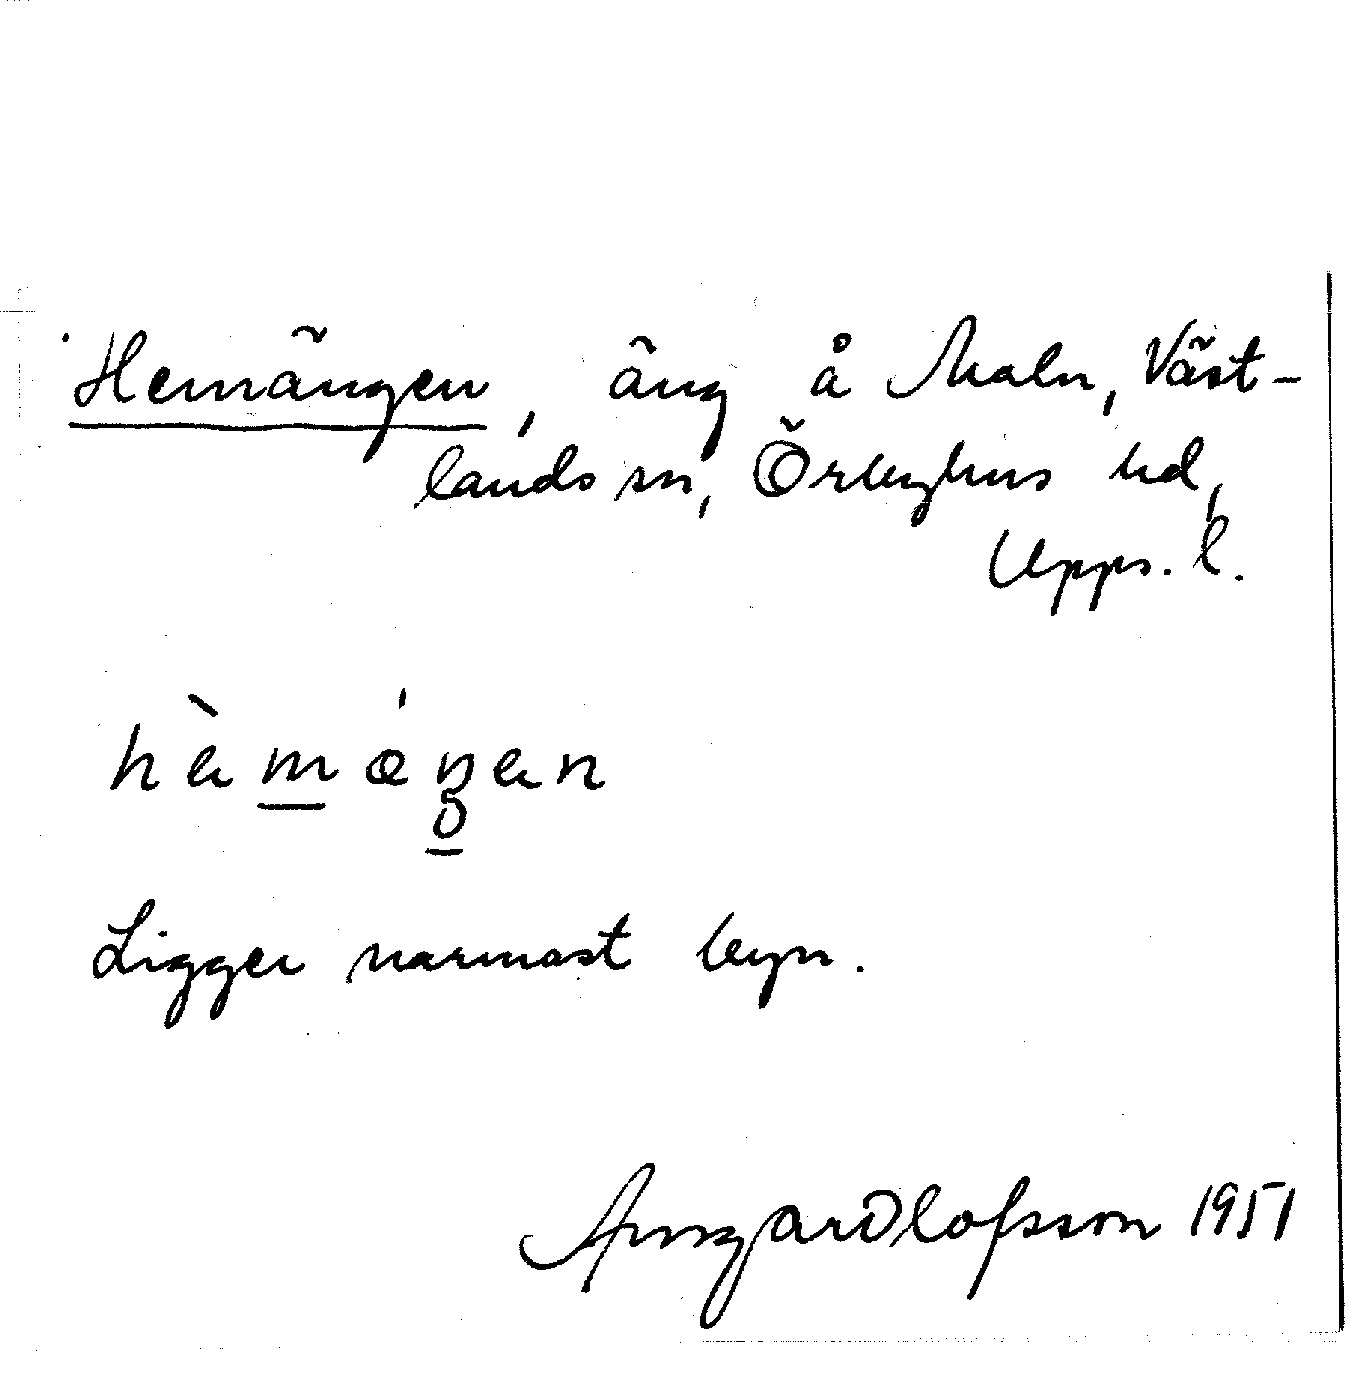 Hemängen, äng å Maln, Väst-
lands sn, Örbyhus hd,
Upps. l.
hèmǿŋen
Ligger närmast byn.
Olofsson 1951